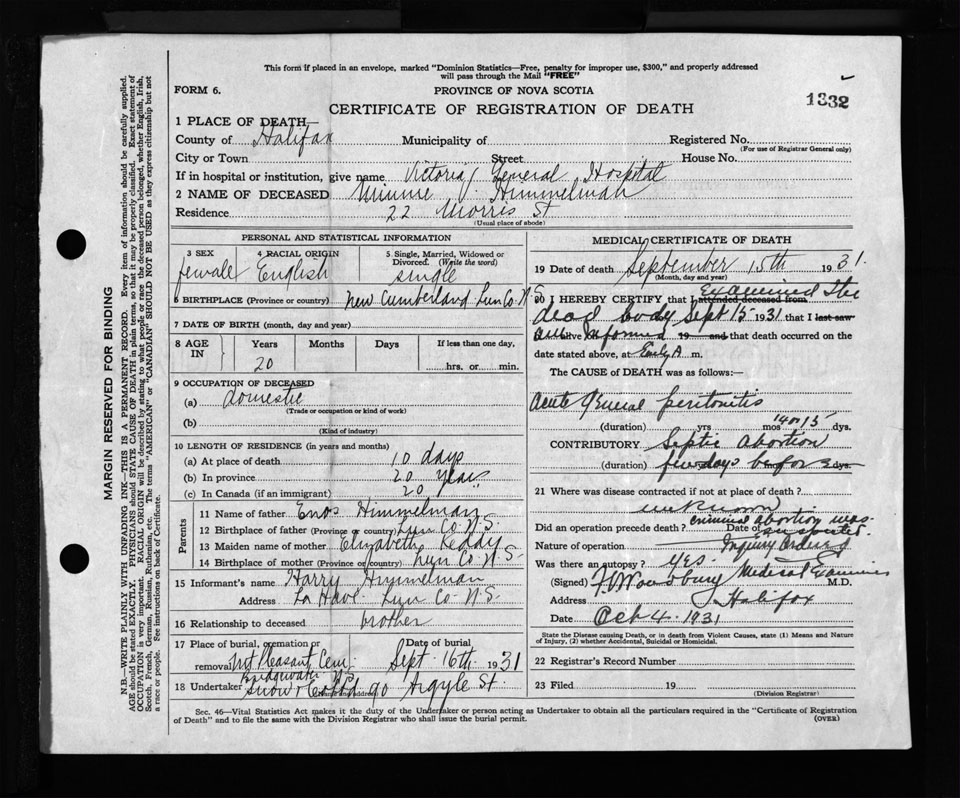 This form if placed in an envelope, marked "Dominion Statistics—Free, penalty for improper use, $300," and properly addressed
will pass through the Mail "FREE"
FORM 6.
PROVINCE OF NOVA SCOTIA
1332
CERTIFICATE OF REGISTRATION OF DEATH
1 PLACE OF DEATH
County of Halifax Municipality of Registered No.
(For use of Registrar General only)
City or Town Street House No.
If in hospital or institution, give name Victoria General Hospital
2 NAME OF DECEASED Minnie J. Himmelman
Residence 22 Morris St
(Usual place of abode)
PERSONAL AND STATISTICAL INFORMATION
3 SEX
female
4 RACIAL ORIGIN
English
5 Single, Married, Widowed or
Divorced. (Write the word)
single
6 BIRTHPLACE (Province or country) New Cumberland Lun Co. N.S.
7 DATE OF BIRTH (month, day and year)
8 AGE IN Years Months Days If less than one day,
20 hrs. or min.
9 OCCUPATION OF DECEASED
(a) domestic
(Trade or occupation or kind of work)
(b)
(Kind of industry)
10 LENGTH OF RESIDENCE (in years and months)
(a) At place of death 10 days
(b) In province 20 years
(c) In Canada (if an immigrant) 20
Parents
11 Name of father Enos Himmelman
12 Birthplace of father (Province or country) Lun Co. N.S.
13 Maiden name of mother Elizabeth Keddy
14 Birthplace of mother (Province or country) Lun Co. N.S.
15 Informant's name Harry Himmelman
Address La Have Lun Co. N.S.
16 Relationship to deceased brother
17 Place of burial, cremation or removal Date of burial
Mt Pleasant Cem. Sept. 16th 1931
Bridgewater N.S.
18 Undertaker Snow & Co Ltd 90 Argyle St.
MEDICAL CERTIFICATE OF DEATH
19 Date of death September 15th 1931.
(Month, day and year)
20 I HEREBY CERTIFY that I attended deceased from Examined the
dead body Sept 15 1931 that I last saw
alive Informed 19 and that death occurred on the
date stated above, at Early A m.
The CAUSE of DEATH was as follows:—
Acute General peritonitis
(duration) yrs mos 14 or 15 dys.
CONTRIBUTORY Septic abortion
(duration) few days before dys.
21 Where was disease contracted if not at place of death?
unknown
Did an operation precede death? criminal abortion was Date of
Nature of operation Inquiry Ordered
Was there an autopsy? yes
(Signed) Medical Examiner M.D.
Address Halifax
Date Oct 4. 1931
State the Disease causing Death, or in death from Violent Causes, state (1) Means and Nature
of Injury, (2) whether Accidental, Suicidal or Homicidal.
22 Registrar's Record Number
23 Filed 19
(Division Registrar)
Sec. 46—Vital Statistics Act makes it the duty of the Undertaker or person acting as Undertaker to obtain all the particulars required in the "Certificate of Registration
of Death" and to file the same with the Division Registrar who shall issue the burial permit.
(OVER)
MARGIN RESERVED FOR BINDING
N.B.—WRITE PLAINLY WITH UNFADING INK—THIS IS A PERMANENT RECORD. Every item of information should be carefully supplied.
AGE should be stated EXACTLY. PHYSICIANS should STATE CAUSE OF DEATH in plain terms, so that it may be properly classified. Exact statement of
OCCUPATION is very important. RACIAL ORIGIN will be described by stating to what people or race the deceased person belonged, whether English, Irish,
Scotch, French, German, Russian, Ruthenian, etc. The terms "AMERICAN" or "CANADIAN" SHOULD NOT BE USED as they express citizenship but not
a race or people. See instructions on back of Certificate.